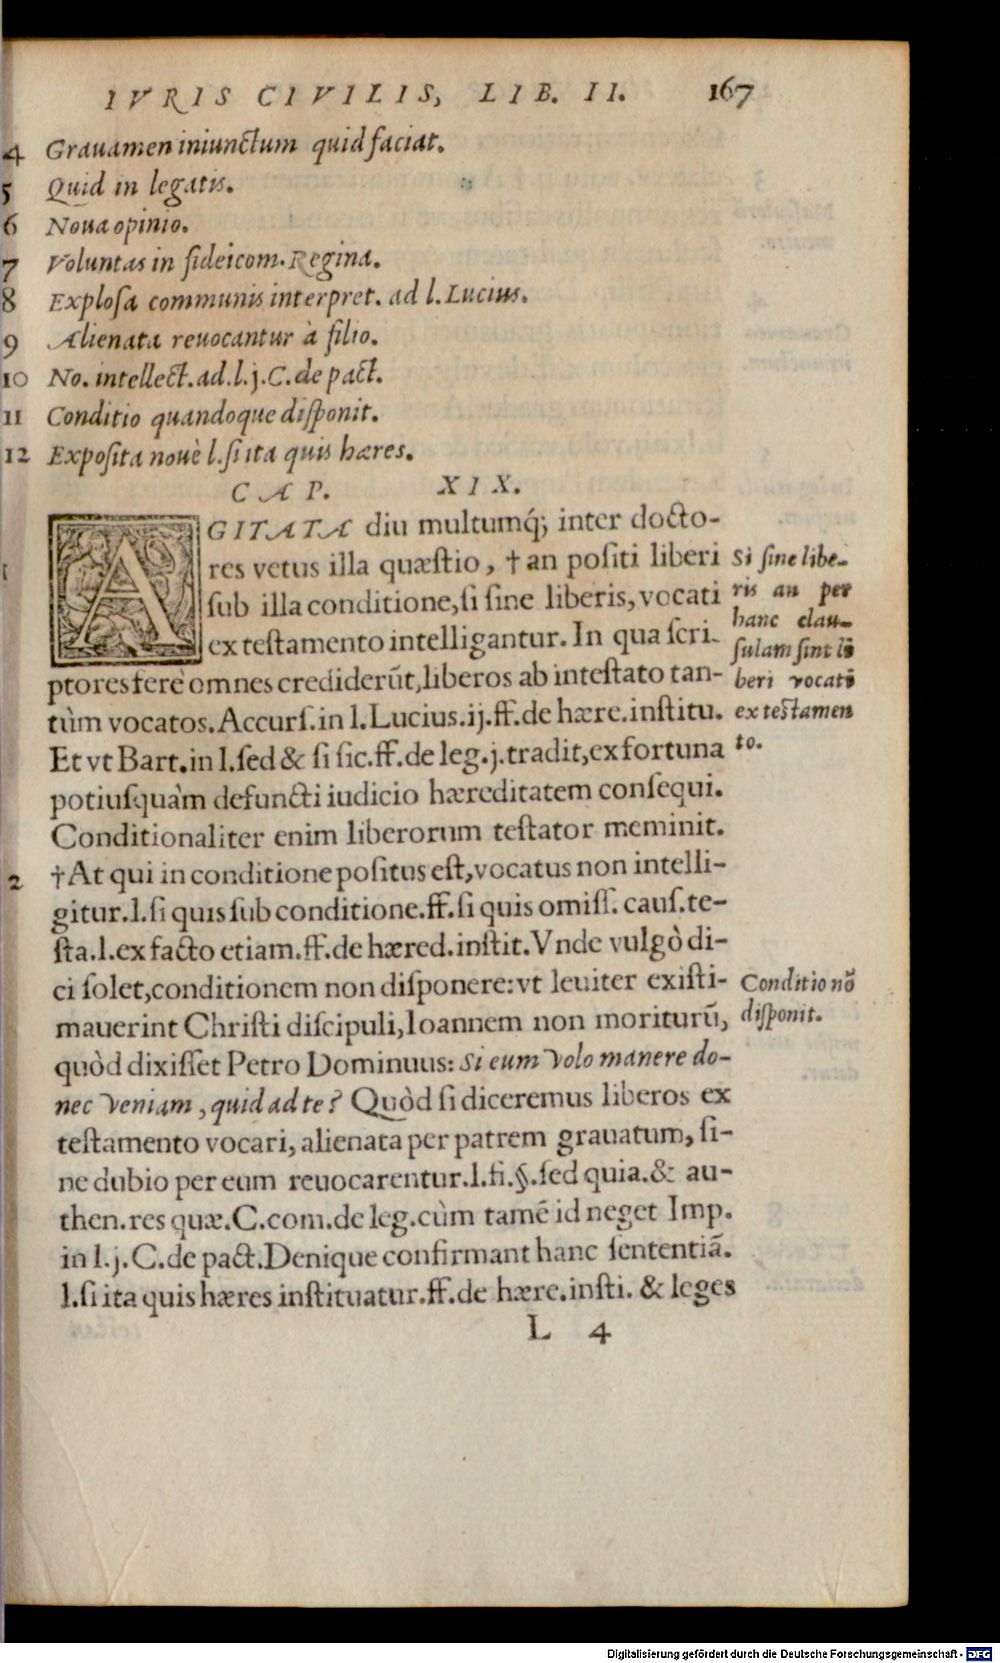 IVRIS CIVILIS, LIB. II. 167
4 Grauamen iniunctum quid faciat.
5 Quid in legatis.
6 Noua opinio.
7 Voluntas in fideicom. Regina.
8 Explosa communis interpret. ad l. Lucius.
9 Alienata reuocantur à filio.
10 No. intellect. ad. l. j. C. de pact.
11 Conditio quandoque disponit.
12 Exposita nouè l. si ita quis hæres.
CAP. XIX.
AGITATA diu multumq́; inter docto-
res vetus illa quæstio, † an positi liberi
sub illa conditione, si sine liberis, vocati
ex testamento intelligantur. In qua scri-
ptores ferè omnes crediderūt, liberos ab intestato tan-
tùm vocatos. Accurs. in l. Lucius. ij. ff. de hære. institu.
Et vt Bart. in l. sed & si sic. ff. de leg. j. tradit, ex fortuna
potiusquàm defuncti iudicio hæreditatem consequi.
Conditionaliter enim liberorum testator meminit.
2 † At qui in conditione positus est, vocatus non intelli-
gitur. l. si quis sub conditione. ff. si quis omiss. caus. te-
sta. l. ex facto etiam. ff. de hæred. instit. Vnde vulgò di-
ci solet, conditionem non disponere: vt leuiter existi-
mauerint Christi discipuli, Ioannem non moriturū,
quòd dixisset Petro Dominuus: Si eum volo manere do-
nec veniam, quid ad te? Quòd si diceremus liberos ex
testamento vocari, alienata per patrem grauatum, si-
ne dubio per eum reuocarentur. l. fi. §. sed quia. & au-
then. res quæ. C. com. de leg. cùm tamē id neget Imp.
in l. j. C. de pact. Denique confirmant hanc sententiā.
l. si ita quis hæres instituatur. ff. de hære. insti. & leges
L 4
Si sine libe-
ris an per
hanc clau-
sulam sint li
beri vocati
ex testamen
to.
Conditio nō
disponit.
Digitalisierung gefördert durch die Deutsche Forschungsgemeinschaft - DFG